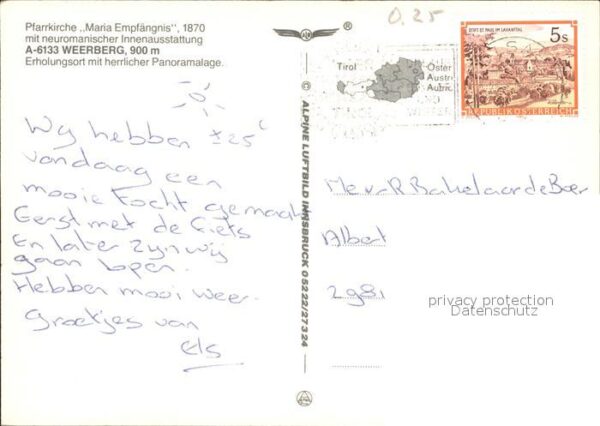 Pfarrkirche „Maria Empfängnis", 1870
mit neuromanischer Innenausstattung
A-6133 WEERBERG, 900 m
Erholungsort mit herrlicher Panoramalage.
0.25
Tirol
Öster
Austri
Autric
STIFT ST. PAUL IM LAVANTTAL
5s
REPUBLIK ÖSTERREICH
© ALPINE LUFTBILD INNSBRUCK 05222/27324
±25°
Wij hebben
vandaag een
mooie tocht gemaakt
Eerst met de fiets
En later zijn wij
gaan lopen.
Hebben mooi weer.
Groetjes van
Els
Mevr R Bakelaar de Boer
Albert
2981
privacy protection
Datenschutz